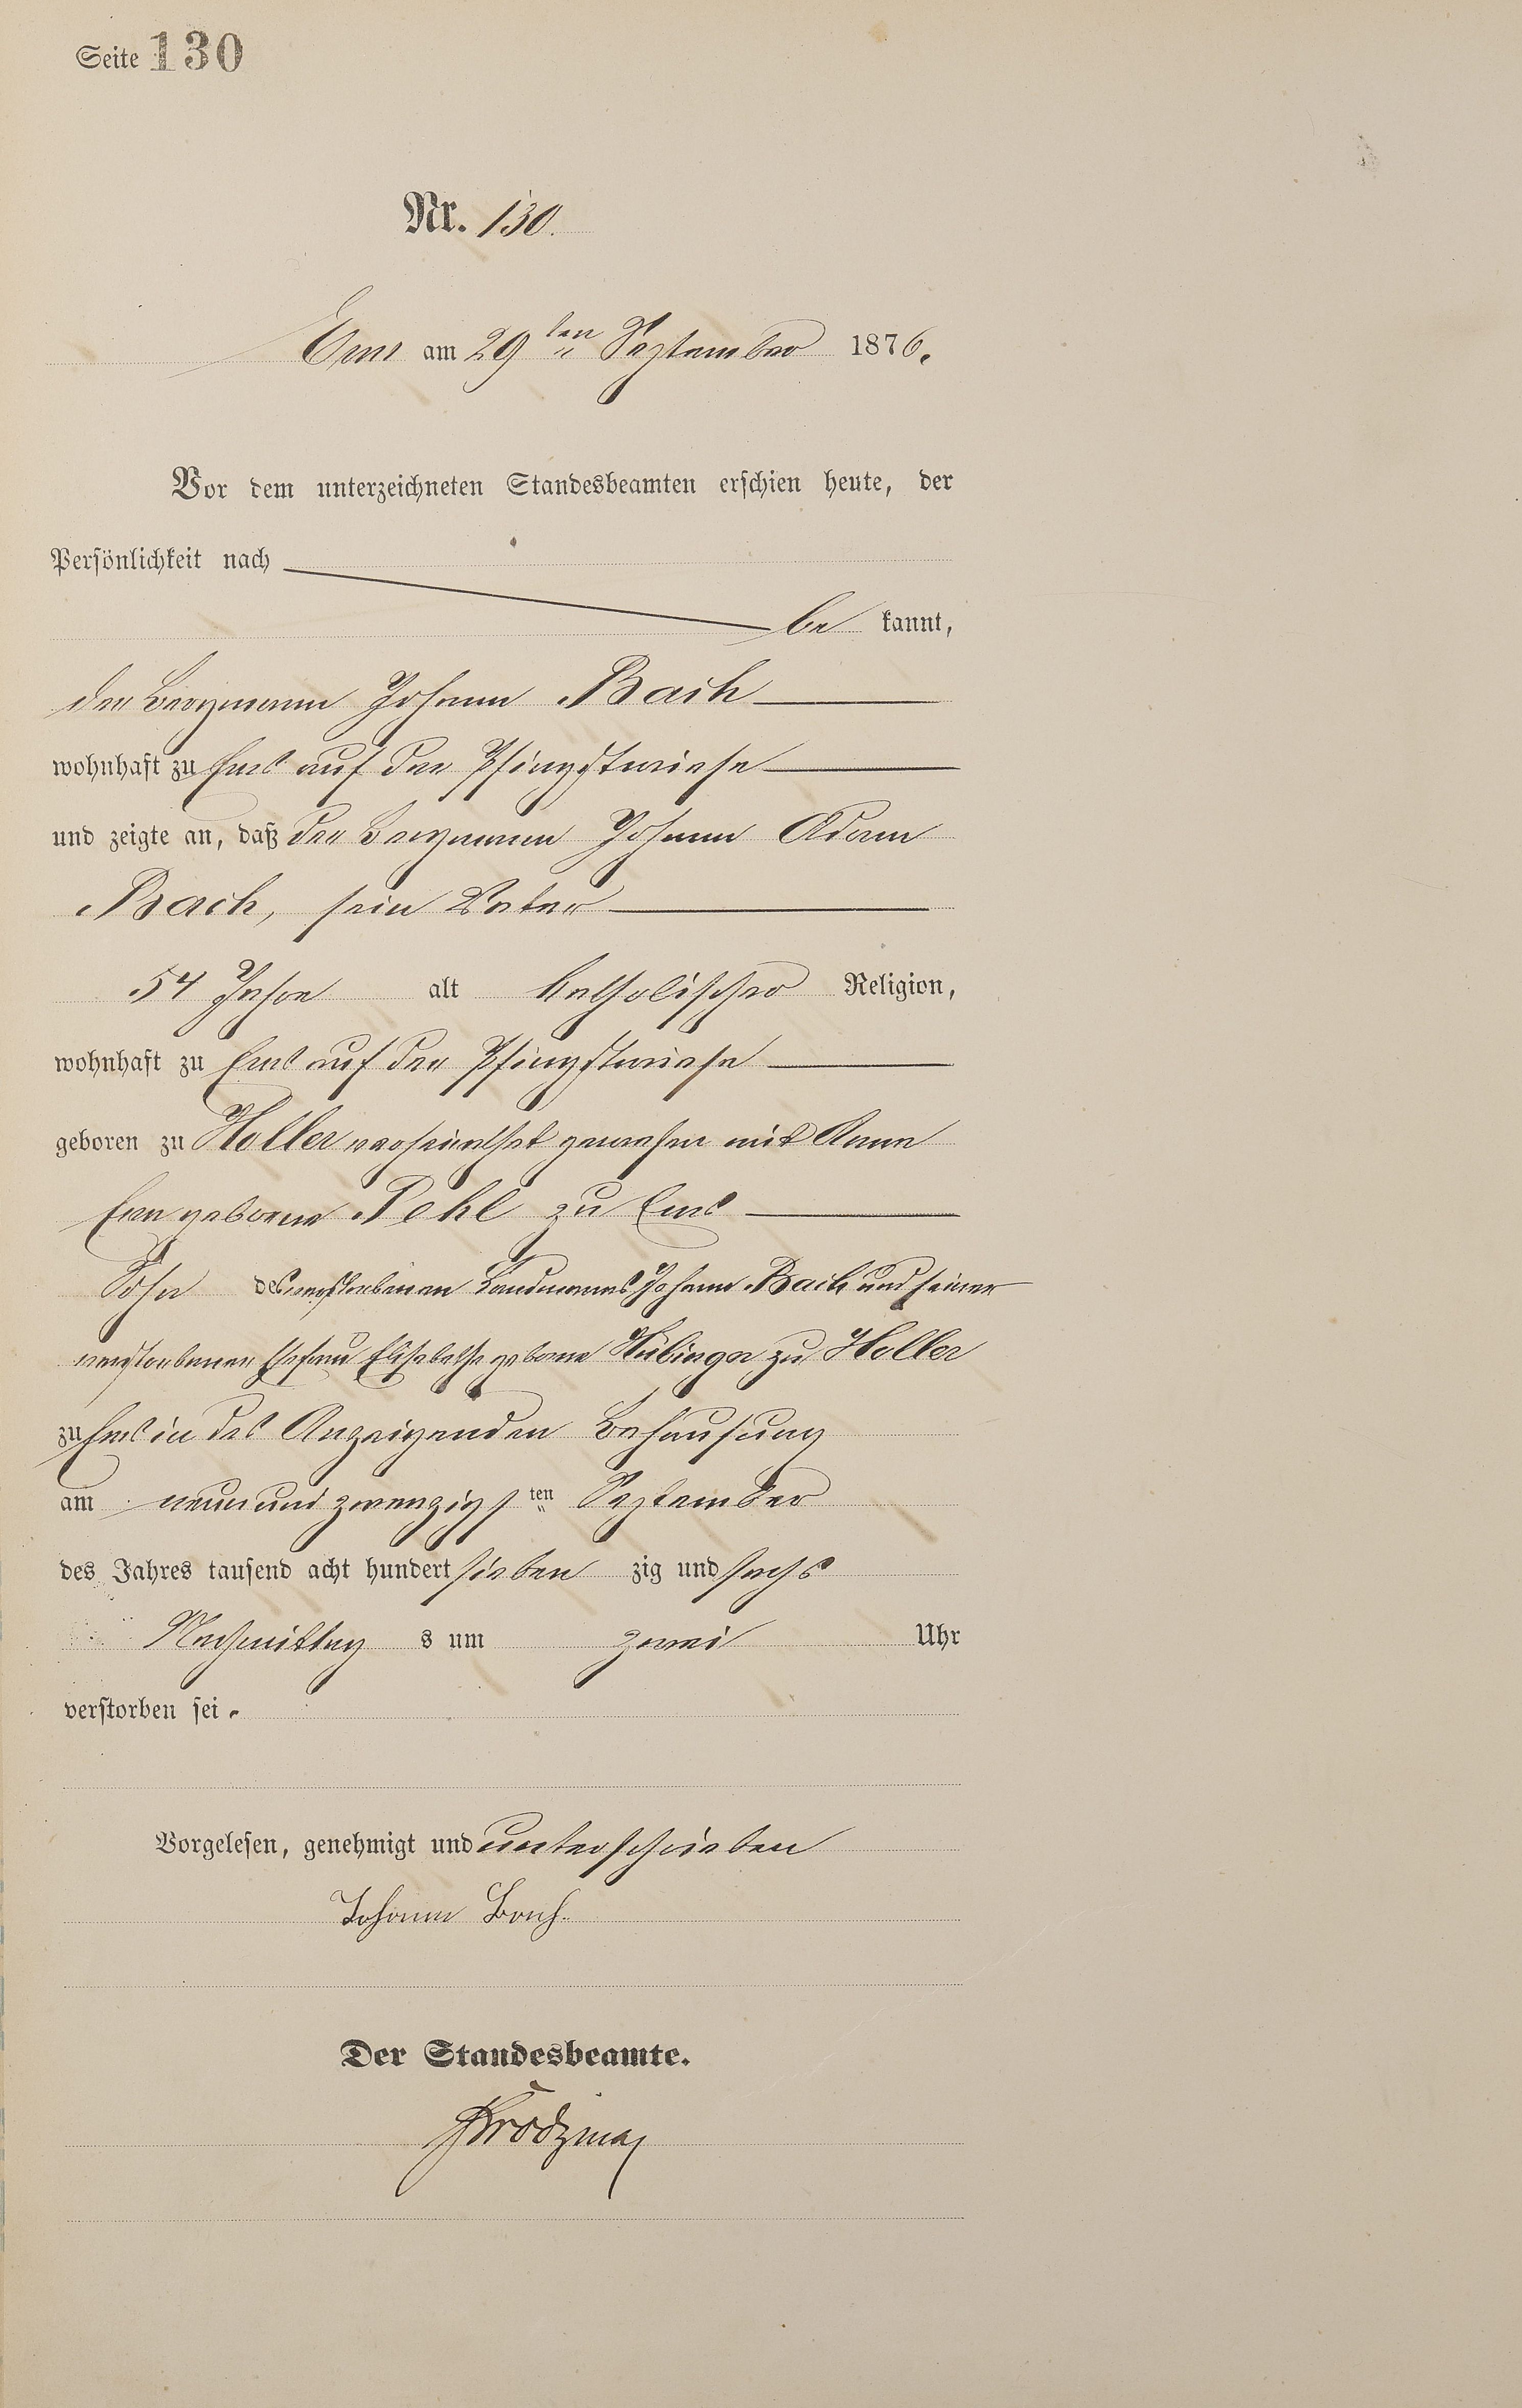 Seite 130
Nr. 130.
Ems am 29ten September 1876.
Vor dem unterzeichneten Standesbeamten erschien heute, der
Persönlichkeit nach
be kannt,
der Bergmann Johann Bach
wohnhaft zu Ems auf der Pfingstwiese
und zeigte an, daß der Bergmann Johann Adam
Bach, sein Vater
54 Jahre alt katholischer Religion,
wohnhaft zu Ems auf der Pfingstwiese
geboren zu Holler verheirathet gewesen mit Anna
Eva geborene Pehl zu Ems
Sohn des verstorbenen Landmannes Johann Bach und seiner
verstorbenen Ehefrau Elisabethe geborne Hübinger zu Holler
zu Ems in des Anzeigenden Behausung
am neunundzwanzigsten September
des Jahres tausend acht hundert sieben zig und sechs
Nachmittag s um zwei Uhr
verstorben sei.
Vorgelesen, genehmigt und unterschrieben
Johann Bach.
Der Standesbeamte.